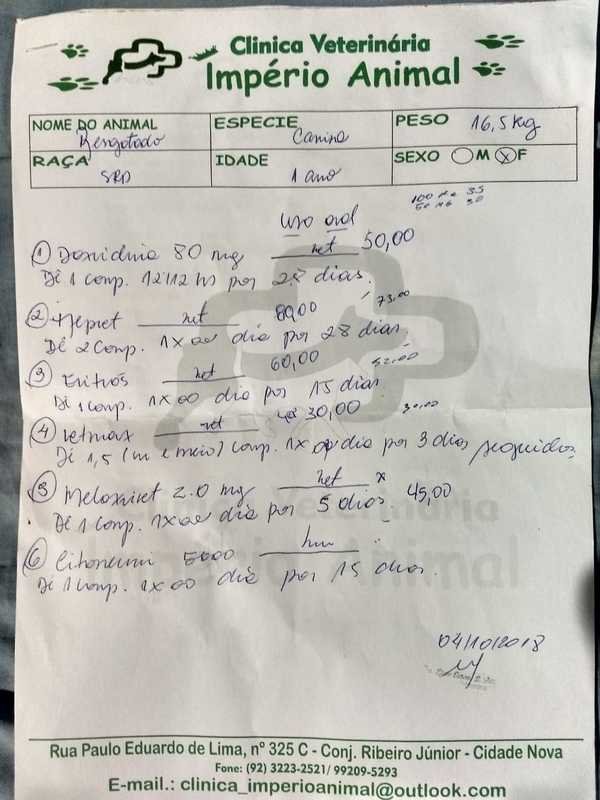 Clinica Veterinária
Império Animal
NOME DO ANIMAL Resgatado
ESPECIE Canina
PESO 16,5 kg
RAÇA SRD
IDADE 1 ano
SEXO M X F
uso oral
① Doxidina 80 mg vet 50,00
Dê 1 comp. 12/12 hs por 28 dias.
② Hepvet vet 80,00 73,00
Dê 2 comp. 1x ao dia por 28 dias.
③ Eritrós vet 60,00 52,00
Dê 1 comp. 1x ao dia por 15 dias
④ vetmax vet 30,00 30,00
Dê 1,5 (um e meio) comp. 1x ao dia por 3 dias seguidos.
⑤ Meloxivet 2.0 mg vet x 45,00
Dê 1 comp. 1x ao dia por 5 dias
⑥ Citoneurin 5000 hum
Dê 1 comp. 1x ao dia por 15 dias.
Clínica Veterinária
Império Animal
04/10/2018
Rua Paulo Eduardo de Lima, nº 325 C - Conj. Ribeiro Júnior - Cidade Nova
Fone: (92) 3223-2521/ 99209-5293
E-mail.: clinica_imperioanimal@outlook.com